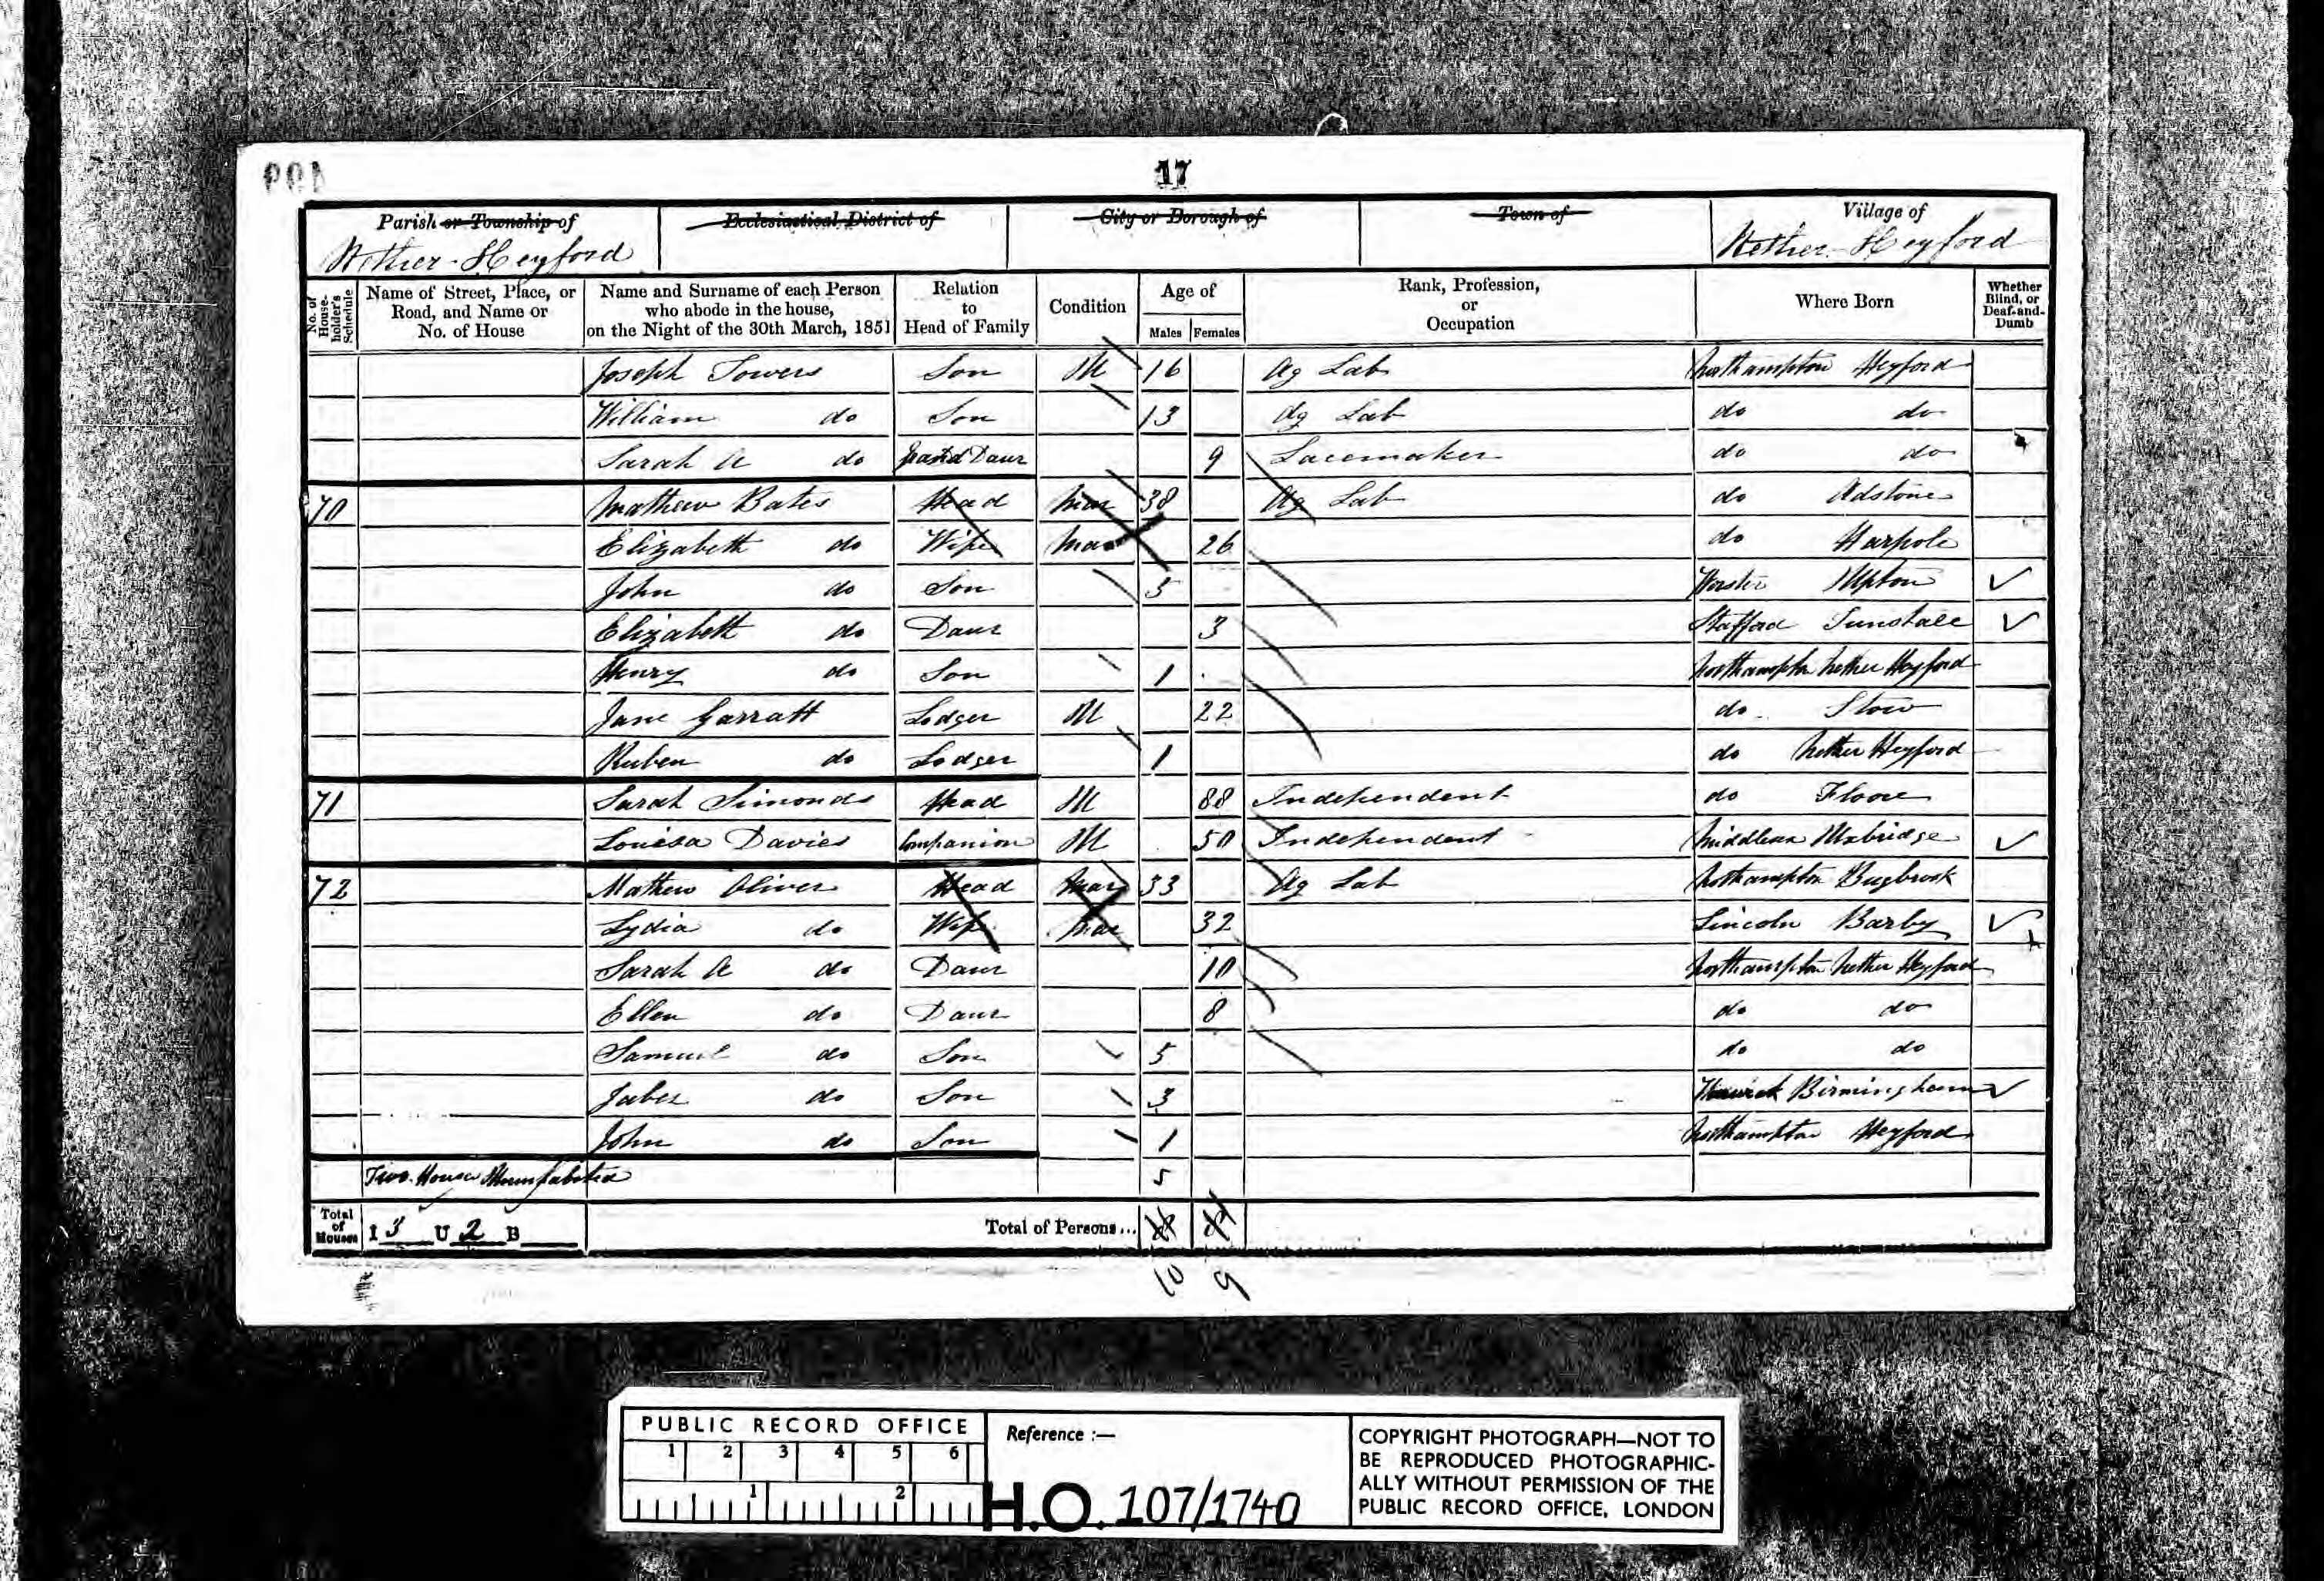 17
Parish or Township of
Ecclesiastical District of
City or Borough of
Town of
Village of
Nether-Heyford
Nether Heyford
No. of House-holder's Schedule
Name of Street, Place, or Road, and Name or No. of House
Name and Surname of each Person who abode in the house, on the Night of the 30th March, 1851
Relation to Head of Family
Condition
Age of
Males
Females
Rank, Profession, or Occupation
Where Born
Whether Blind, or Deaf-and-Dumb
Joseph Towers Son 16 Ag Lab Northampton Heyford
William do Son 13 Ag Lab do do
Sarah A do Grand Daur 9 Lacemaker do do
70 Mathew Bates Head Mar 38 Ag Lab do Adstone
Elizabeth do Wife Mar 26 do Harpole
John do Son 5 Upton
Elizabeth do Daur 3 Stafford Tunstall
Henry do Son 1 Northampton Nether Heyford
Jane Garratt Lodger 22 do Stow
Ruben do Lodger 1 do Nether Heyford
71 Sarah Simonds Head 88 Independent do Floore
Louisa Davies Companion 50 Independent Middlesex Uxbridge
72 Mathew Oliver Head Mar 33 Ag Lab Northampton Bugbrook
Lydia do Wife Mar 32 Lincoln Barby
Sarah A do Daur 10 Northampton Nether Heyford
Ellen do Daur 8 do do
Samuel do Son 5 do do
Jabez do Son 3 Birmingham
John do Son 1 Northampton Heyford
Two House 5
Total of Houses I 3 U 2 B
Total of Persons...
10 9
PUBLIC RECORD OFFICE
1 2 3 4 5 6
1 2
Reference :—
H.O. 107/1740
COPYRIGHT PHOTOGRAPH—NOT TO
BE REPRODUCED PHOTOGRAPHIC-
ALLY WITHOUT PERMISSION OF THE
PUBLIC RECORD OFFICE, LONDON